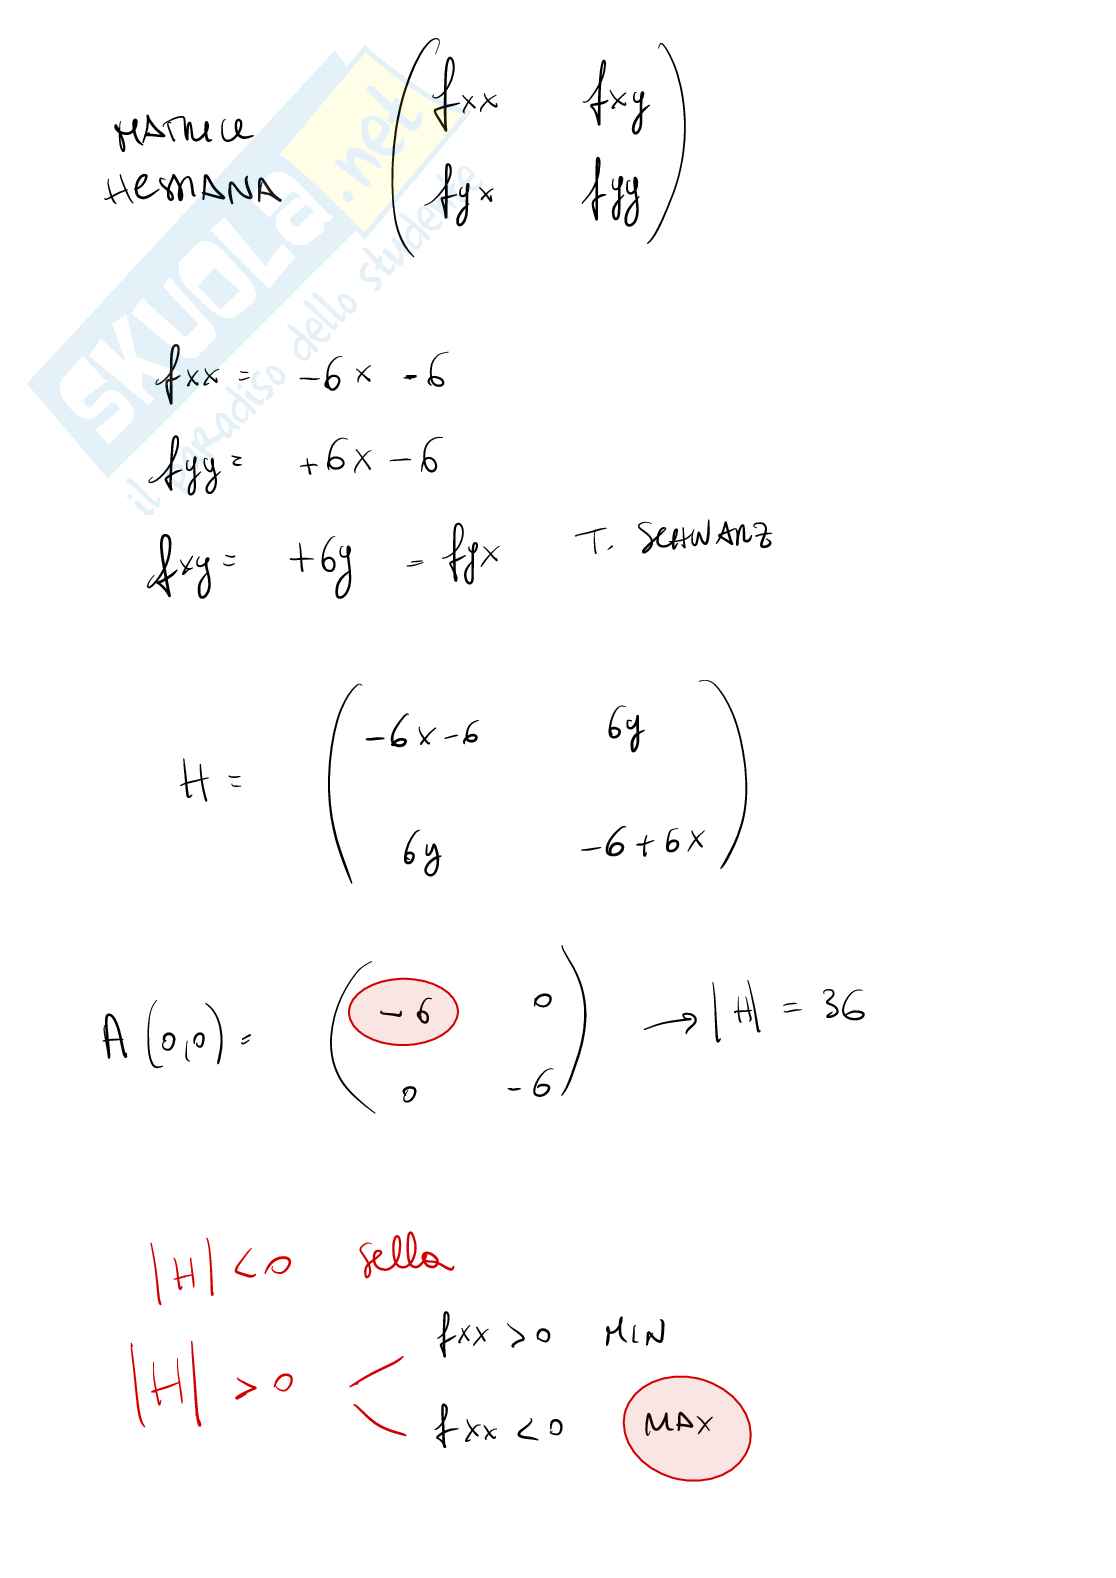 MATRICE
HESSIANA
( fxx fxy
fyx fyy )
SKUOLA.net
il paradiso dello studente
fxx = -6x -6
fyy = +6x -6
fxy = +6y = fyx T. SCHWARZ
H = ( -6x-6 6y
6y -6+6x )
A (0,0) = ( -6 0
0 -6 ) → |H| = 36
|H| <0 sella
|H| >0 < fxx >0 MIN
fxx <0 MAX